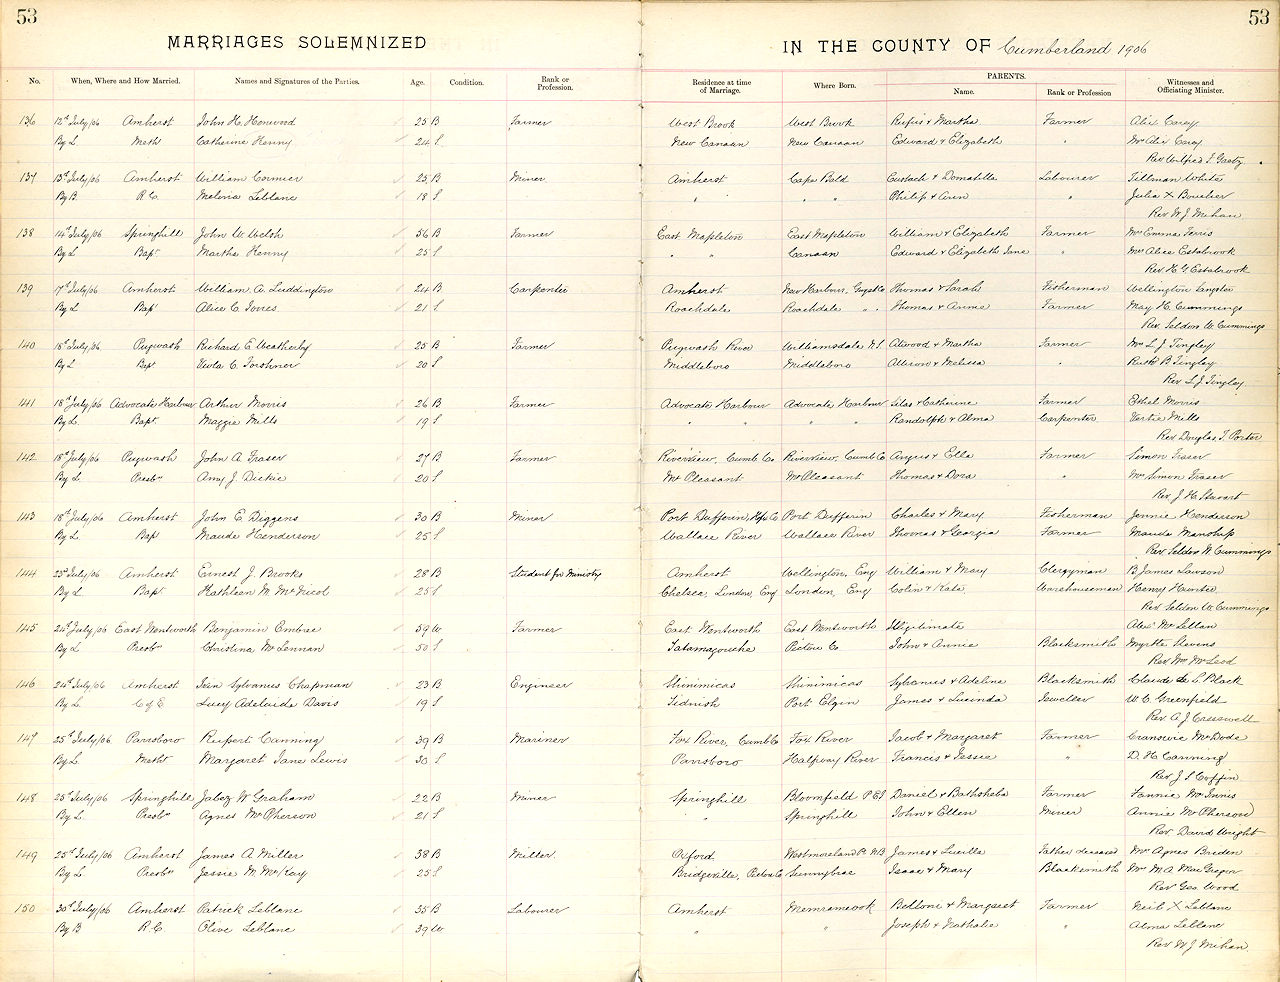 53
53
MARRIAGES SOLEMNIZED
IN THE COUNTY OF Cumberland 1906
No. When, Where and How Married. Names and Signatures of the Parties. Age. Condition. Rank or Profession. Residence at time of Marriage. Where Born. PARENTS. Name. Rank or Profession Witnesses and Officiating Minister.
136 12th July/06 Amherst John H. Henwood 25 B Farmer West Brook West Brook Rufus & Martha Farmer Alex Carey
By L Meth Catherine Kenny 24 S New Canaan New Canaan Edward & Elizabeth " Mrs Alex Carey
Rev Wilfred J. Gaetz
137 13th July/06 Amherst William Cormier 25 B Miner Amherst Cape Bald Eustach & Domatilla Labourer Tillman White
By B. R.C. Melina Leblanc 18 S " " " Philip & Ann " Julia X
Rev W J Mihan
138 14th July/06 Springhill John W. Welsh 56 B Farmer East Mapleton East Mapleton William & Elizabeth Farmer Mrs Emma Ferris
By L Bapt Martha Kenny 25 S " " Canaan Edward & Elizabeth Jane " Mrs Alice Estabrook
Rev. H. G. Estabrook
139 17th July/06 Amherst William A. Luddington 24 B Carpenter Amherst New Harbour, Guys Co Thomas & Sarah Fisherman Wellington
By L Bapt Alice C. 21 S Roachdale Roachdale " . Thomas & Annie Farmer May H. Cummings
Rev. Seldon W. Cummings
140 18th July/06 Pugwash Richard E Weatherby 25 B Farmer Pugwash River Williamsdale N.S. Atwood & Martha Farmer Mrs L J Tingley
By L Bapt Viola C. Forshner 20 S Middleboro Middleboro Allison & Melissa " Ruth B Tingley
Rev L J Tingley
141 18th July/06 Advocate Harbour Arthur Morris 26 B Farmer Advocate Harbour Advocate Harbour Silas & Catherine Farmer Ethel Morris
By L. Bapt. Maggie Mills 19 S " " " " Randolph & Alma Carpenter Mills
Rev Douglas J. Porter
142 18th July/06 Pugwash John A Fraser 27 B Farmer Riverview, Cumb. Co Riverview, Cumb Co Angus & Ella Farmer Simon Fraser
By L Presbn Amy J. Dickie 20 S Mt Pleasant Mt Pleasant Thomas & Dora " Mrs Simon Fraser
Rev. J. H. Stewart
143 18th July/06 Amherst John E. Diggens 30 B Miner Port Dufferin, Hfx Co Port Dufferin Charles & Mary Fisherman Jennie Henderson
By L. Bap Maude Henderson 25 S Wallace River Wallace River Thomas & Georgia Farmer Mauda
Rev Seldon W Cummings
144 23d July/06 Amherst Ernest J. Brooks 28 B Student for Ministry Amherst Wellington, Eng William & May Clergyman B. James Lawson
By L. Bapt Kathleen M. McNicol 25 S Chelsea, London, Eng London, Eng Colin & Kate Warehouseman Henry Hunter
Rev Seldon W Cummings
145 24th July/06 East Wentworth Benjamin Embree 59 W Farmer East Wentworth East Wentworth Illegitimate Alex McLellan
By L Presbn Christina McLennan 50 S Tatamagouche Pictou Co John & Annie Blacksmith Myrtle Stevens
Rev Wm McLeod
146 24th July/06 Amherst Ivan Sylvanus Chapman 23 B Engineer Shinimicas Shinimicas Sylvanus & Adelina Blacksmith Claude L. Black
By L. C of E Lucy Adelaida Davis 19 S Tidnish Port Elgin James & Lucinda Jeweller W. C Greenfield
Rev A J Cresswell
147 25th July/06 Parrsboro Rupert Canning 39 B Mariner Fox River, Cumb Co Fox River Jacob & Margaret Farmer McDade
By L. Meth Margaret Jane Lewis 30 S Parrsboro Halfway River Francis & Jessie " D. H. Canning
Rev J. S Coffin
148 25th July/06 Springhill Jabez W Graham 22 B Miner Springhill Bloomfield P.E.I Daniel & Bathsheba Farmer Fannie McInnis
By L Presbn Agnes McPherson 21 S " Springhill John & Ellen Miner Annie McPherson
Rev David Wright
149 25th July/06 Amherst James A Miller 38 B Miller. Oxford Westmoreland Pt NB James & Lucilla Father deceased Mrs Agnes Briden
By L Presbn Jessie M. McKay 25 S Bridgeville, Pictou Co Sunnybrae Isaac & Mary Blacksmith Mrs M. A. MacGregor
Rev Geo Wood
150 30th July/06 Amherst Patrick Leblanc 35 B Labourer Amherst Memramcook Belloni & Margaret Farmer Neil X Leblanc
By B R.C. Olive Leblanc 39 W " " Joseph & Nathalie " Alma Leblanc
Rev W J Mihan